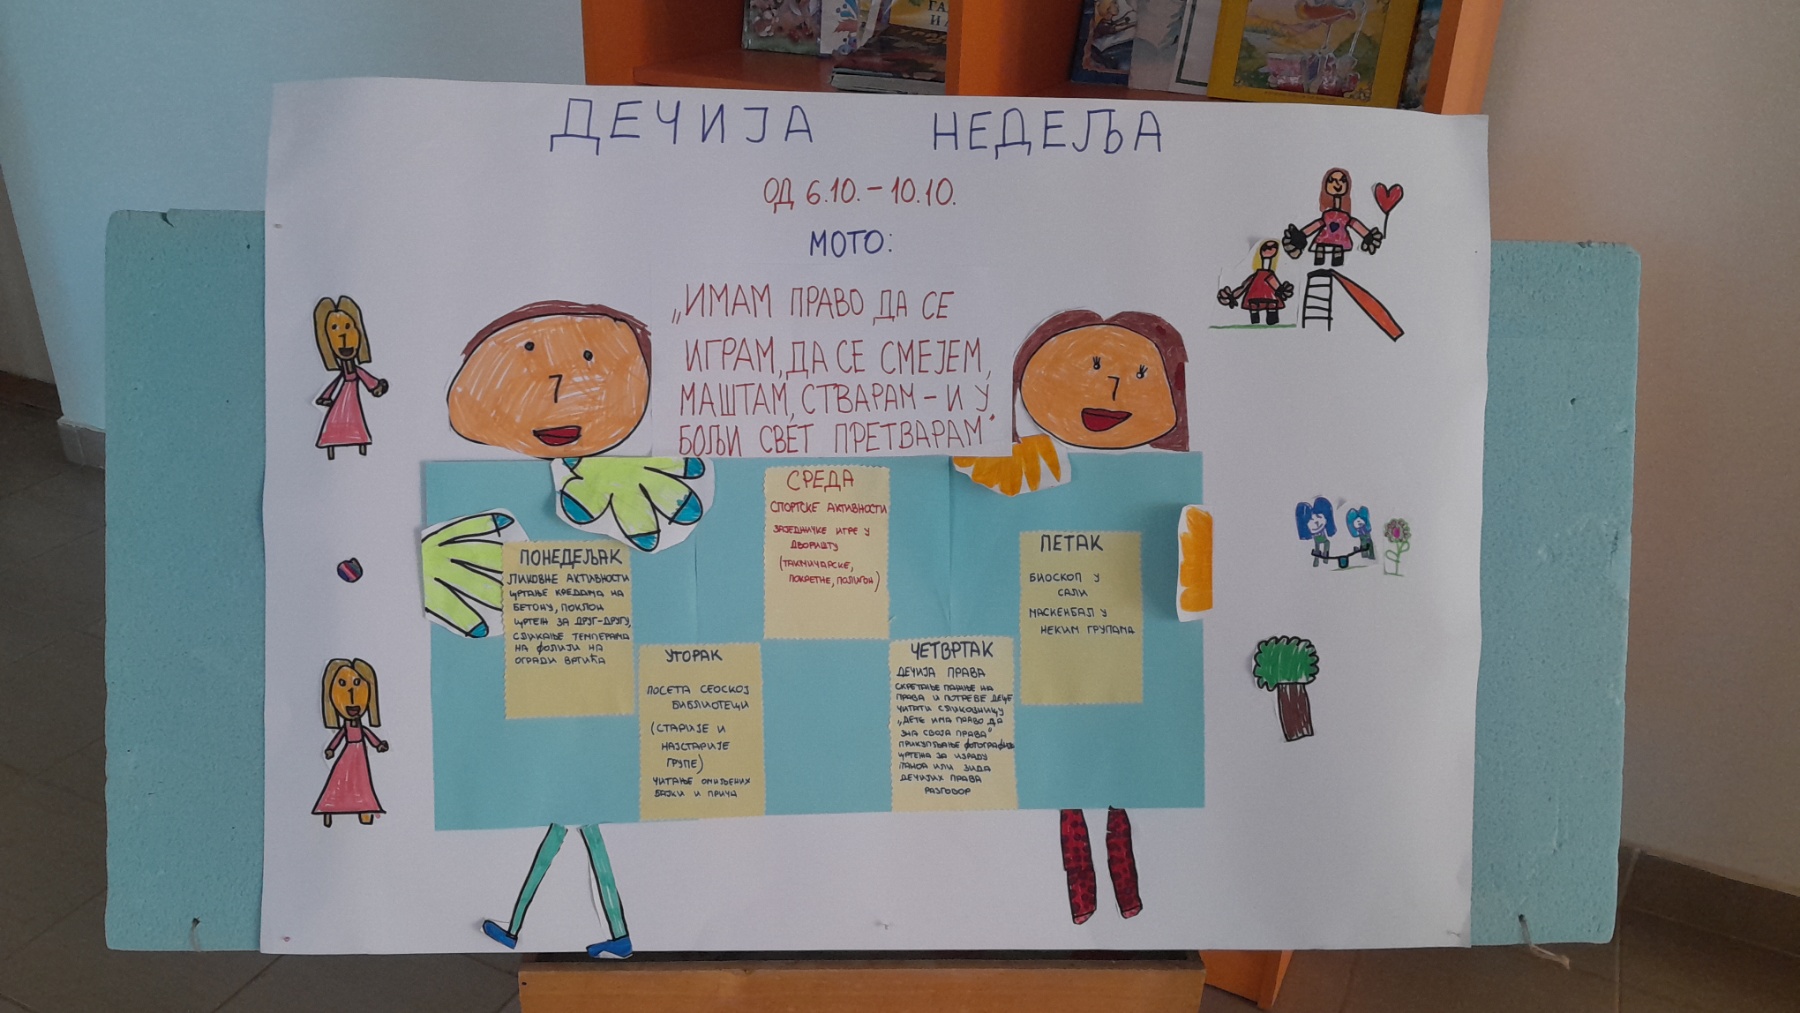 ДЕЧИЈА НЕДЕЉА
ОД 6.10. – 10.10.
МОТО:
„ИМАМ ПРАВО ДА СЕ
ИГРАМ, ДА СЕ СМЕЈЕМ,
МАШТАМ, СТВАРАМ – И У
БОЉИ СВЕТ ПРЕТВАРАМ"
ПОНЕДЕЉАК
ЛИКОВНЕ АКТИВНОСТИ
ЦРТАЊЕ КРЕДАМА НА
БЕТОНУ, ПОКЛОН
ЦРТЕЖ ЗА ДРУГ-ДРУГУ,
СЛИКАЊЕ ТЕМПЕРАМА
НА ФОЛИЈИ НА
ОГРАДИ ВРТИЋА
УТОРАК
ПОСЕТА СЕОСКОЈ
БИБЛИОТЕЦИ
(СТАРИЈЕ И
НАЈСТАРИЈЕ
ГРУПЕ)
ЧИТАЊЕ ОМИЉЕНИХ
БАЈКИ И ПРИЧА
СРЕДА
СПОРТСКЕ АКТИВНОСТИ
ЗАЈЕДНИЧКЕ ИГРЕ У
ДВОРИШТУ
(ТАКМИЧАРСКЕ,
ПОКРЕТНЕ, ПОЛИГОН)
ЧЕТВРТАК
ДЕЧИЈА ПРАВА
СКРЕТАЊЕ ПАЖЊЕ НА
ПРАВА И ПОТРЕБЕ ДЕЦЕ
ЧИТАТИ СЛИКОВНИЦУ
„ДЕТЕ ИМА ПРАВО ДА
ЗНА СВОЈА ПРАВА"
ПРИКУПЉАЊЕ ФОТОГРАФИЈА
ЦРТЕЖА ЗА ИЗРАДУ
ПАНОА ИЛИ ЗИДА
ДЕЧИЈИХ ПРАВА
РАЗГОВОР
ПЕТАК
БИОСКОП У
САЛИ
МАСКЕНБАЛ У
НЕКИМ ГРУПАМА